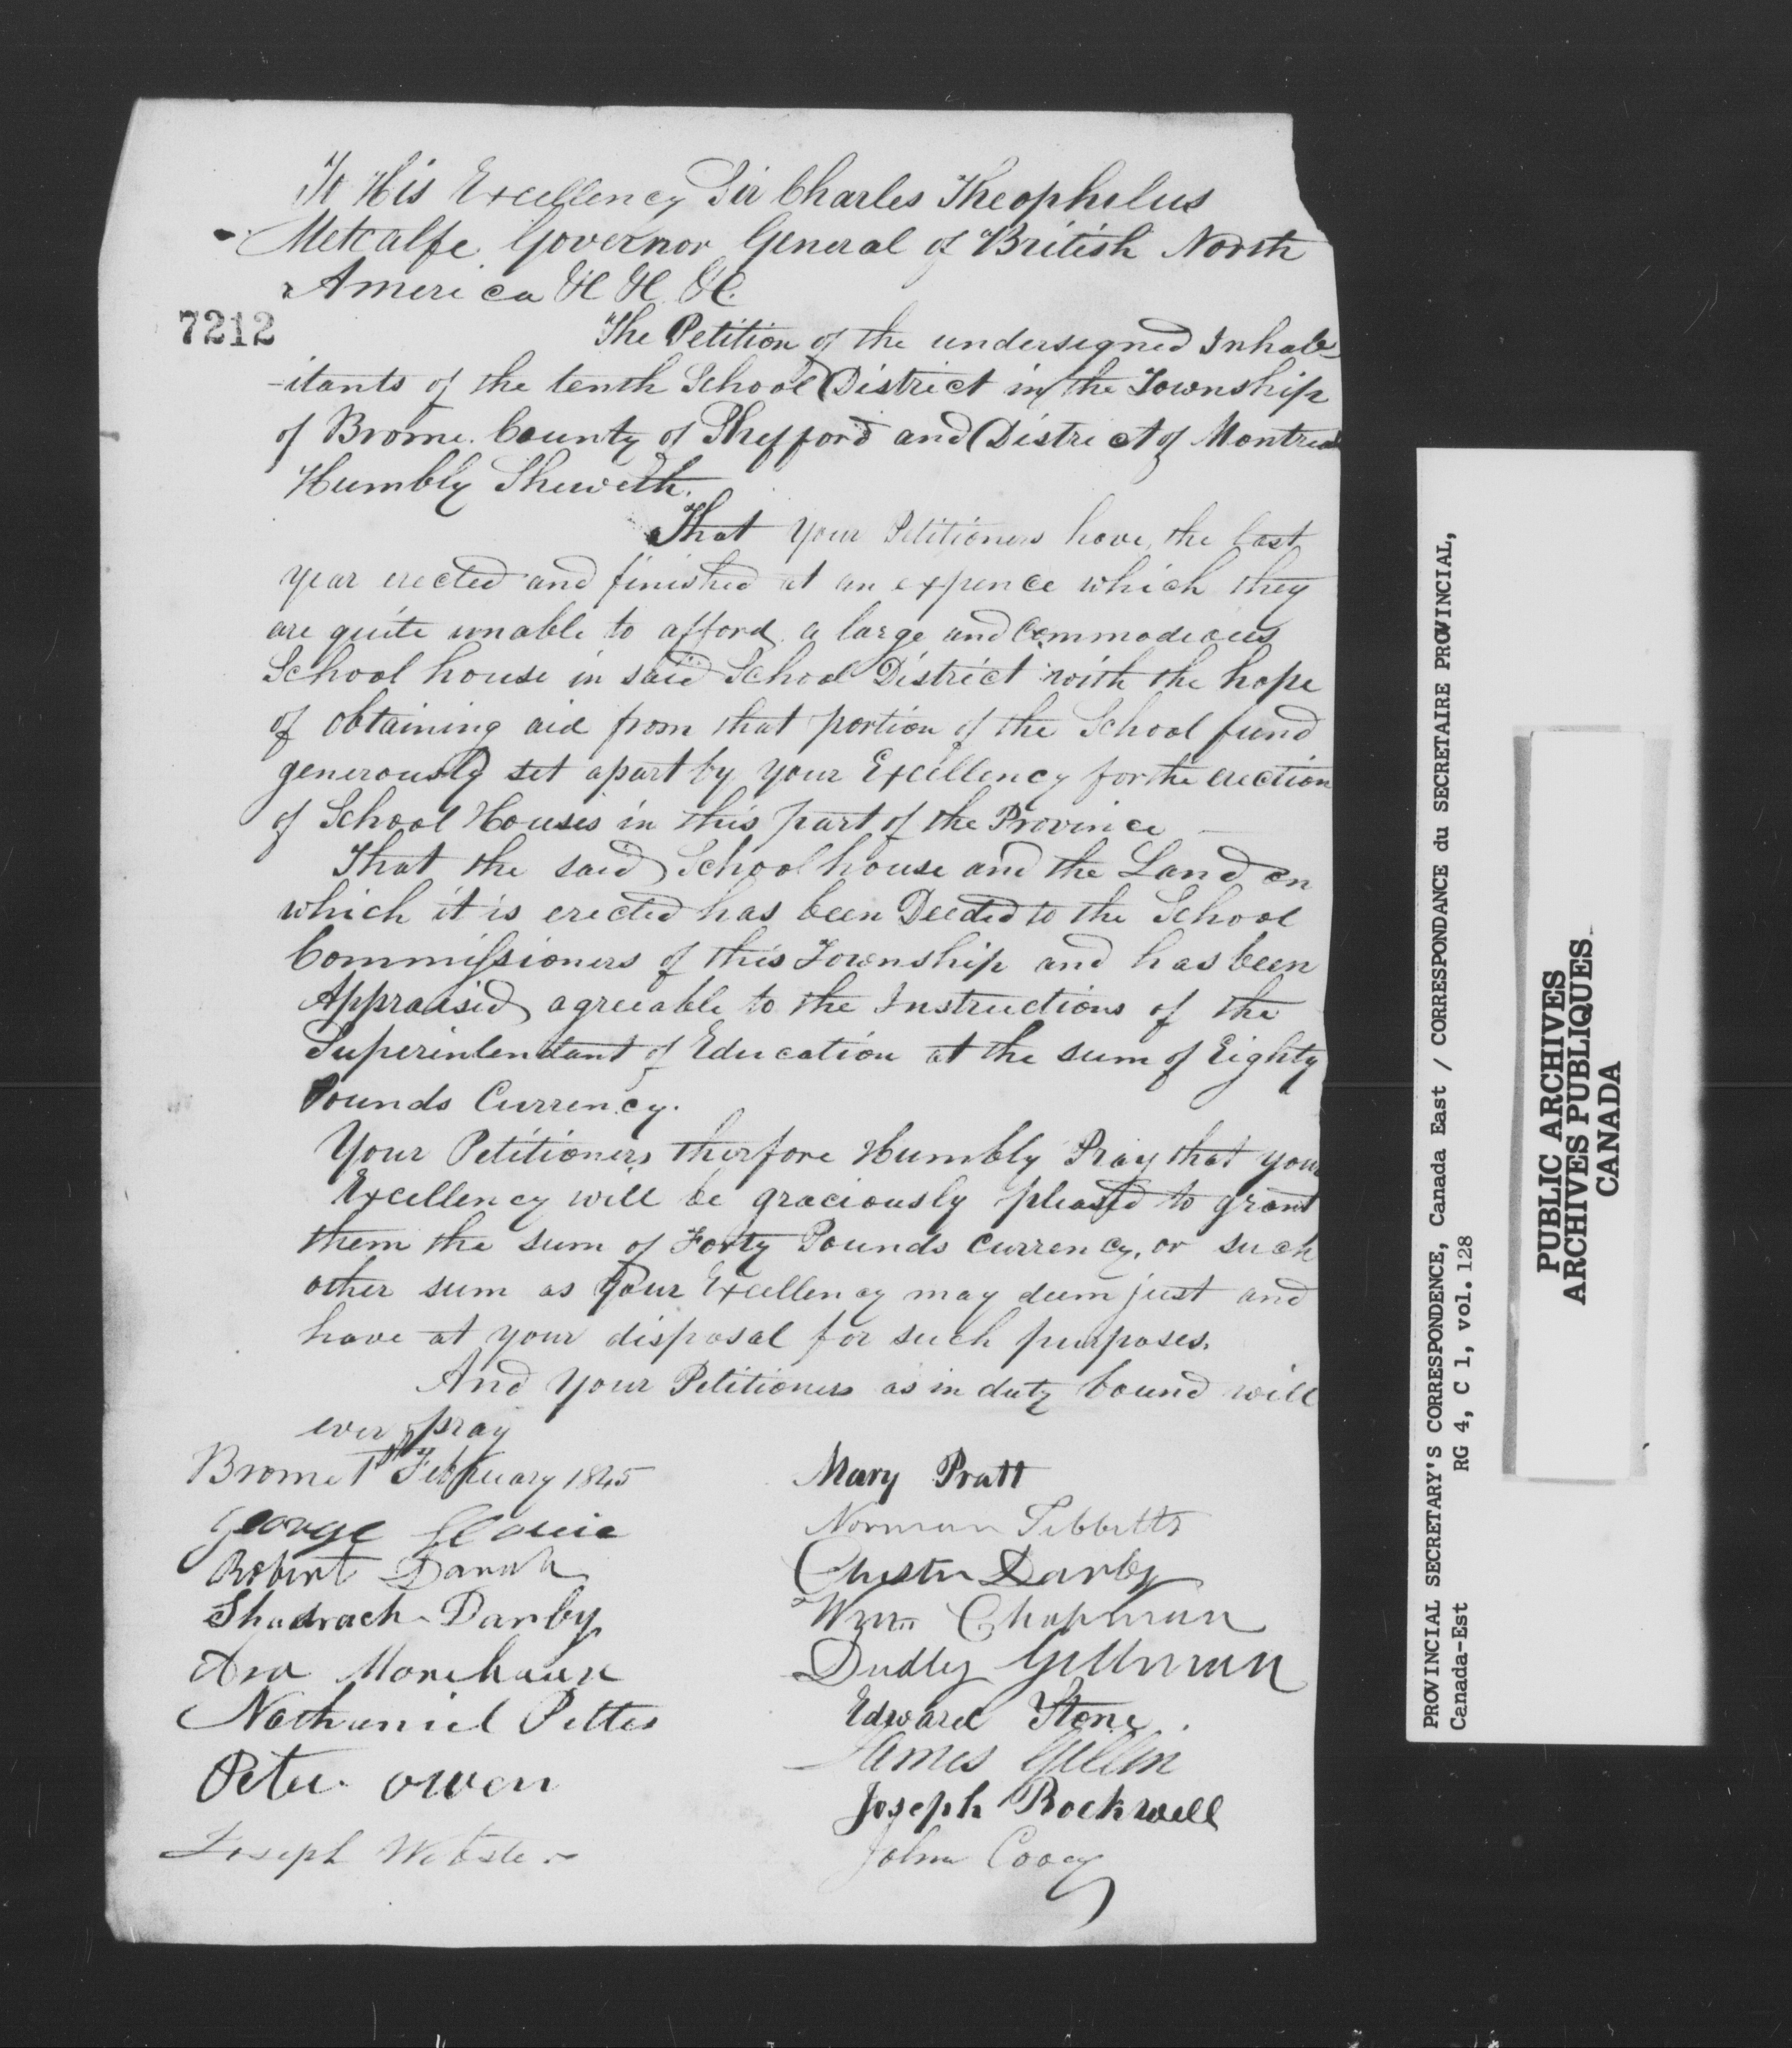 To His Excellency Sir Charles Theophelus
Metcalfe Governor General of British North
America &c &c &c.
7212
The Petition of the undersigned Inhab-
-itants of the tenth School District in the Township
of Brome County of Shefford and District of Montreal
Humbly Sheweth.
That your Petitioners have the last
year erected and finished at an expence which they
are quite unable to afford a large and Commodious
School house in said School District with the hope
of obtaining aid from that portion of the School fund
generously set apart by your Excellency for the erection
of School Houses in this part of the Province
That the said School house and the Land on
which it is erected has been Deeded to the School
Commissioners of this Township and has been
Appraised agreeable to the Instructions of the
Superintendant of Education at the sum of Eighty
Pounds Currency.
Your Petitioners therfore Humbly Pray that your
Excellency will be graciously pleased to grant
them the sum of Forty Pounds Currency, or such
other sum as your Excellency may deem just and
have at your disposal for such purposes.
And your Petitioners as in duty bound will
ever pray
Brome 1st February 1845
Mary Pratt
George
Norman Tibbetts
Robert
Chester Darby
Shadrach Darby
Wm Chapman
Asa Morehouse
Dudley Gillman
Nathaniel Pettes
Edward Stone.
Peter Owen
James
Joseph Rockwell
Joseph Webster
John
PROVINCIAL SECRETARY'S CORRESPONDENCE, Canada East / CORRESPONDANCE du SECRETAIRE PROVINCIAL,
Canada-Est RG 4, C 1, vol. 128
PUBLIC ARCHIVES
ARCHIVES PUBLIQUES
CANADA